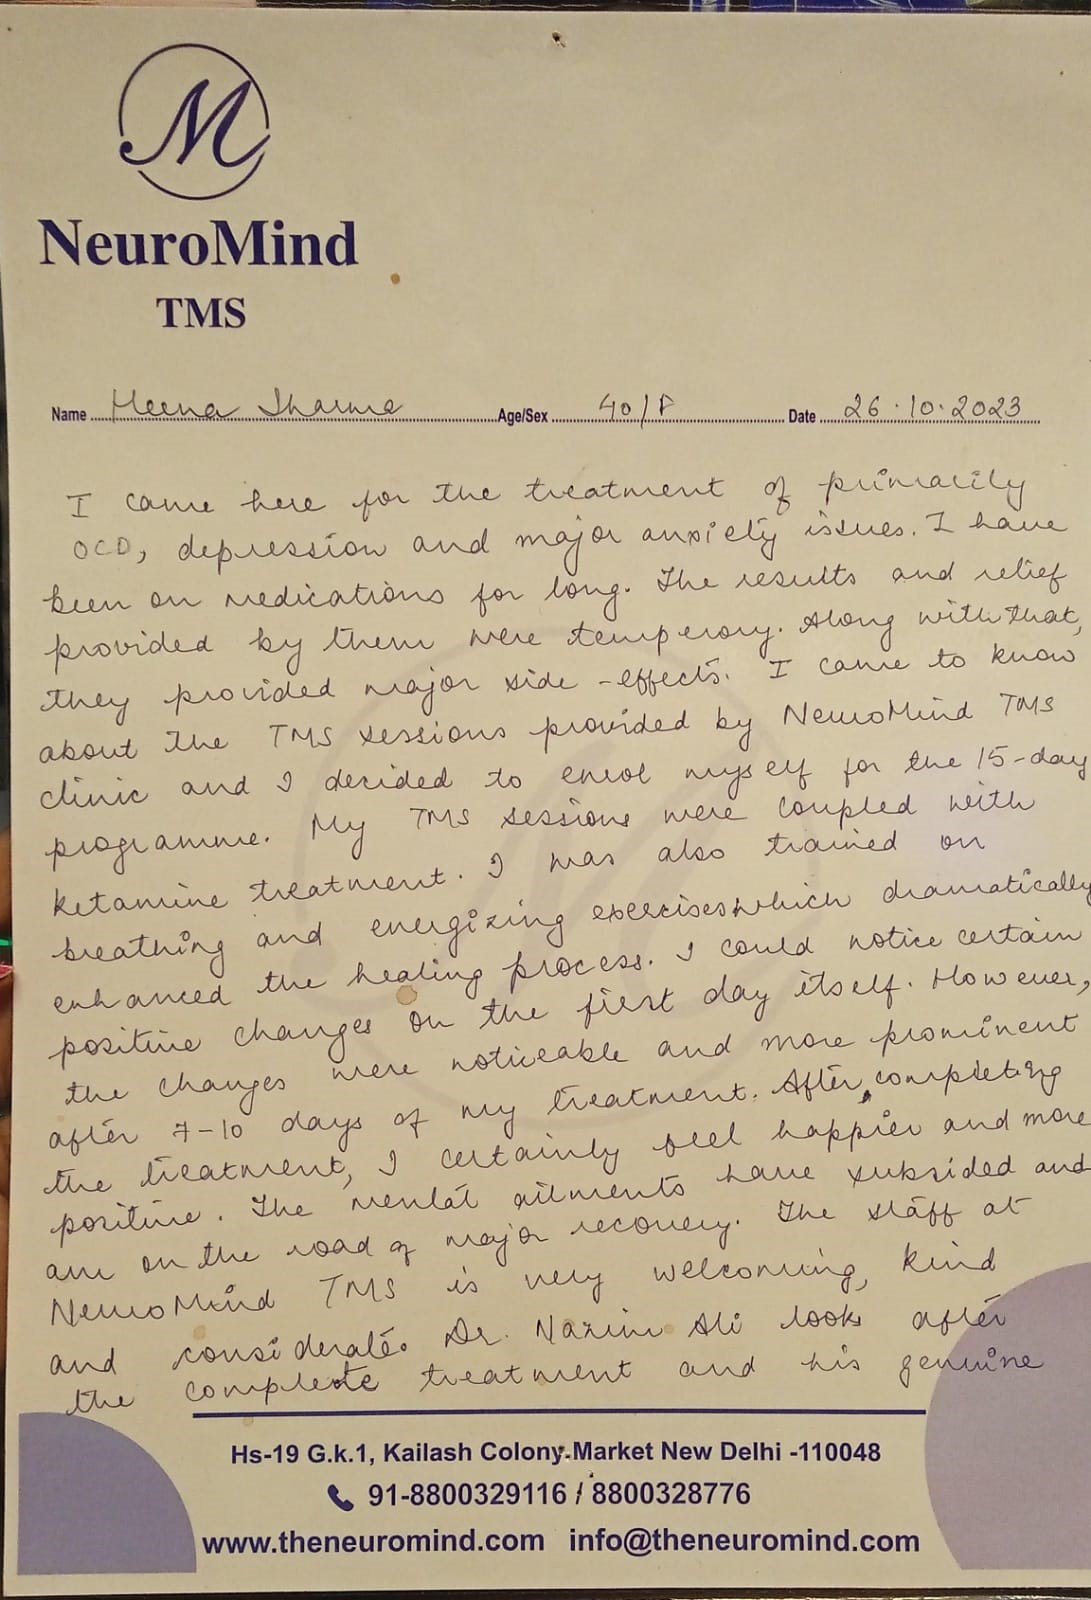 M
NeuroMind
TMS
Name Meena Sharma Age/Sex 40/F Date 26.10.2023
I came here for the treatment of primarily
OCD, depression and major anxiety issues. I have
been on medications for long. The results and relief
provided by them were temperory. Along with that,
they provided major side-effects. I came to know
about the TMS sessions provided by NeuroMind TMS
clinic and I decided to enrol myself for the 15-day
programme. My TMS sessions were coupled with
ketamine treatment. I was also trained on
breathing and energizing exercises which dramatically
enhanced the healing process. I could notice certain
positive changes on the first day itself. However,
the changes were noticeable and more prominent
after 7-10 days of my treatment. After completing
the treatment, I certainly feel happier and more
positive. The mental ailments have subsided and
am on the road of major recovery. The staff at
NeuroMind TMS is very welcoming, kind
and considerate. Dr. Nazim Ali looks after
the complete treatment and his genuine
Hs-19 G.k.1, Kailash Colony Market New Delhi -110048
91-8800329116 / 8800328776
www.theneuromind.com info@theneuromind.com